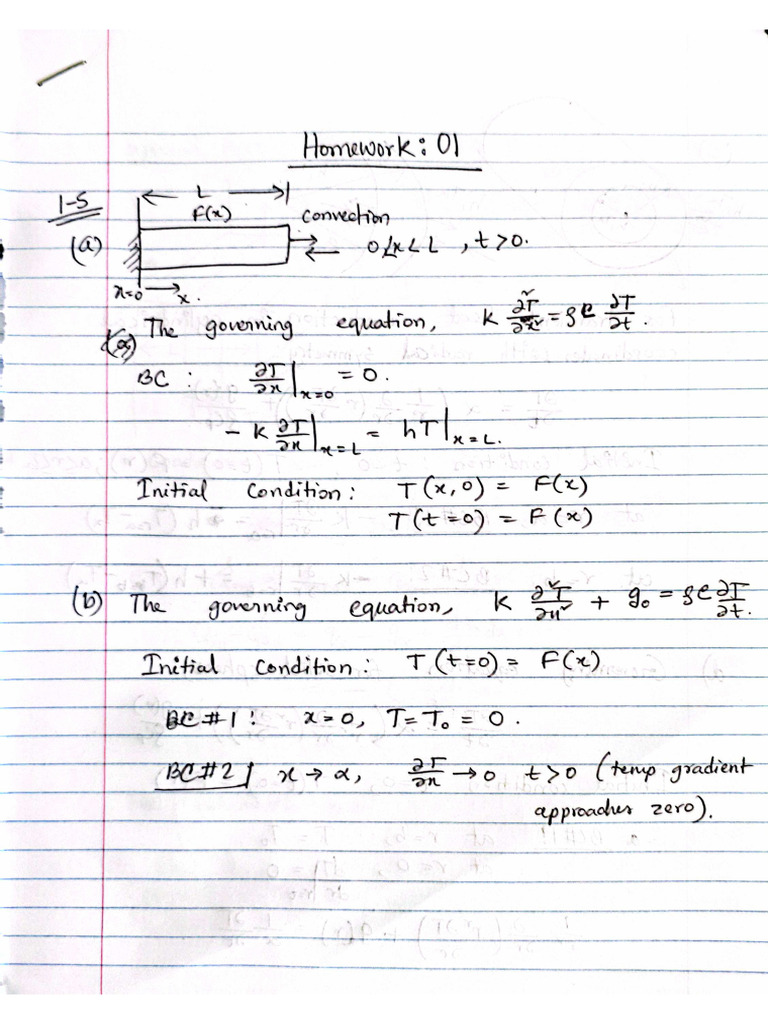 Homework: 01
1-5
L
F(x)
convection
(a)
0<x<L , t>0.
x=0
x.
(a) The governing equation, K ∂²T/∂x² = ρc ∂T/∂t.
BC : ∂T/∂x|x=0 = 0.
- K ∂T/∂x|x=L = hT|x=L.
Initial Condition: T(x,0) = F(x)
T(t=0) = F(x)
(b) The governing equation, K ∂²T/∂x² + g₀ = ρc ∂T/∂t.
Initial Condition: T(t=0) = F(x)
BC#1: x=0, T=T₀ = 0.
BC#2 x → α, ∂T/∂x → 0 t>0 (temp gradient
approaches zero).